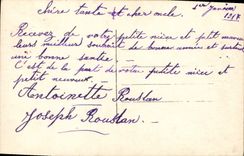 chère tante et cher oncle. 1er Janvier
Recevez de votre petite nièce et ptit neveu
leurs meilleur souhait de bonne année et surtout
une bonne santée
C'est de la part de votre petite nièce et
petit neuveux.
Antoinette Roustan
Joseph Roustan.